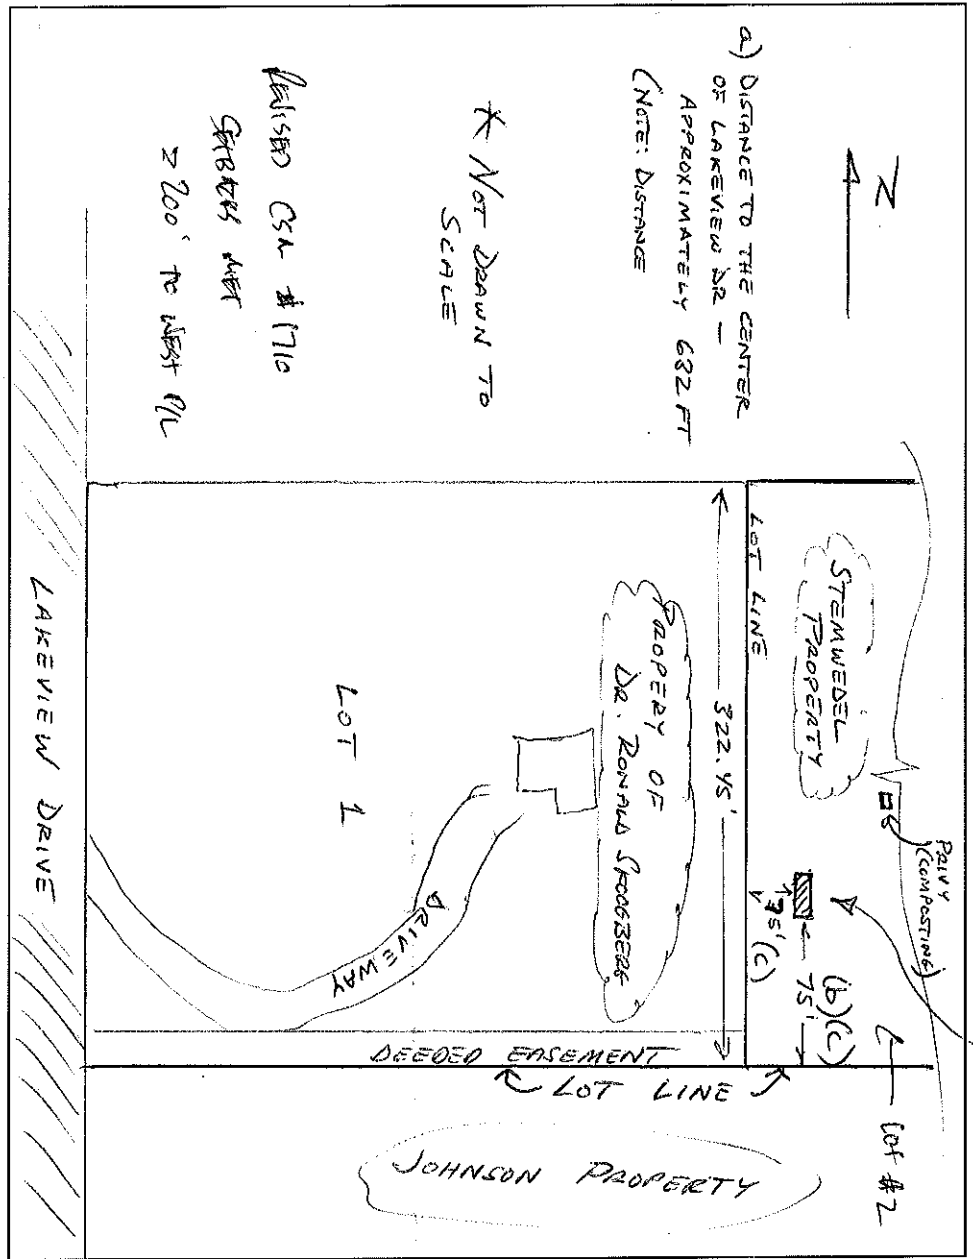 N
a) DISTANCE TO THE CENTER
OF LAKEVIEW DR —
APPROXIMATELY 632 FT
(NOTE: DISTANCE
* NOT DRAWN TO
SCALE
REVISED CSM #1710
SETBACKS MET
>200' TO WEST P/L
STEMWEDEL
PROPERTY
PRIVY
(COMPOSTING)
LOT #2
(b)(c)
75'
75'
(c)
LOT LINE
322.45'
PROPERY OF
DR. RONALD SKOOGBERG
LOT 1
DRIVEWAY
DEEDED EASEMENT
LOT LINE
JOHNSON PROPERTY
LAKEVIEW DRIVE